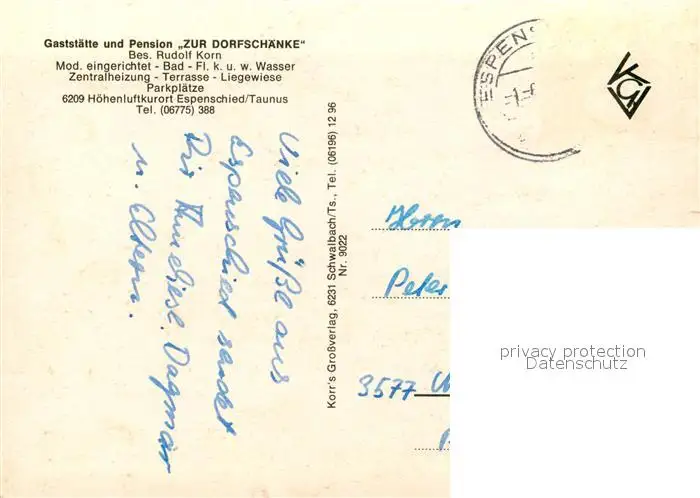 Gaststätte und Pension „ZUR DORFSCHÄNKE"
Bes. Rudolf Korn
Mod. eingerichtet - Bad - Fl. k. u. w. Wasser
Zentralheizung - Terrasse - Liegewiese
Parkplätze
6209 Höhenluftkurort Espenschied/Taunus
Tel. (06775) 388
Viele Grüße aus
Espenschied sendet
Dir Anneliese, Dagmar
u. Eltern.
Korr's Großverlag, 6231 Schwalbach/Ts., Tel. (06196) 12 96
Nr. 9022
ESPENS
Herrn
Peter
3577
privacy protection
Datenschutz